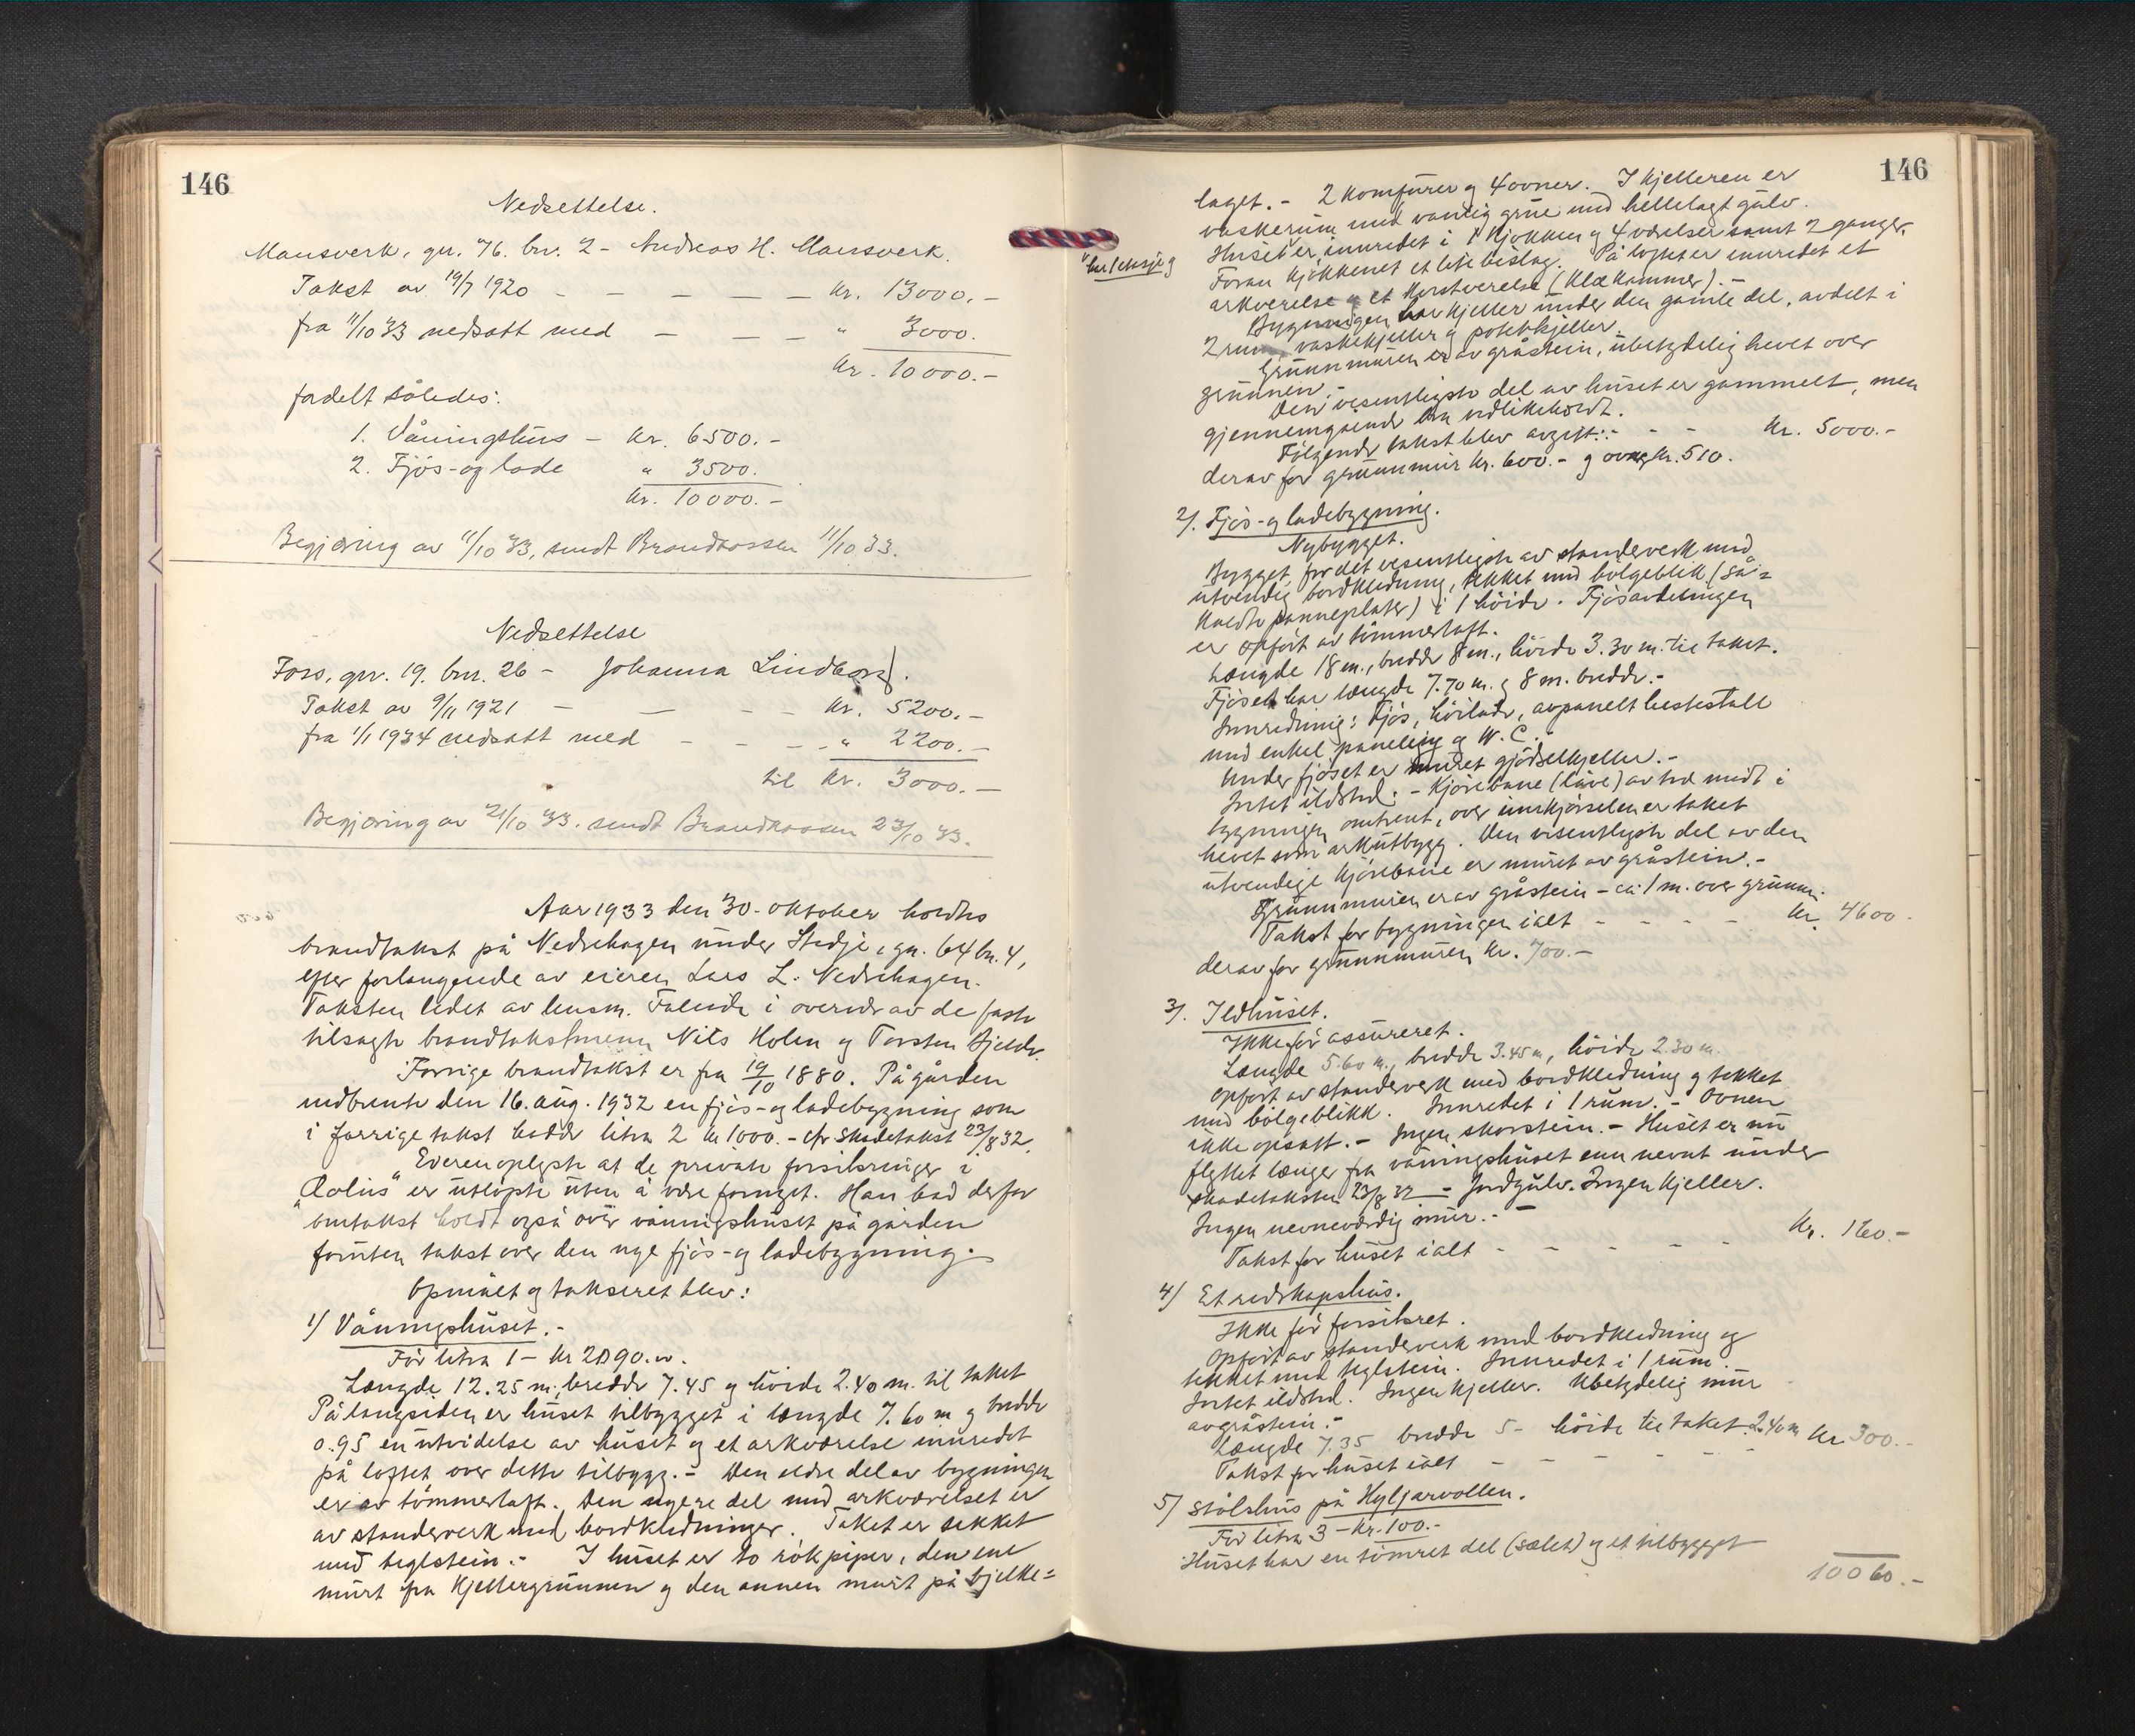 146
Nedsettelse.
Mansverk, gnr. 76. bnr. 2 - Andreas H. Mansverk.
Takst av 19/7 1920 - - - - - kr. 13000.-
fra 11/10 33 nedsatt med - - - " 3000.
kr. 10000.-
fordelt således:
1. Våningshus - kr. 6500.-
2. Fjøs- og lade " 3500.
kr. 10000.-
Begjæring av 11/10 33, sendt Brandkassen 11/10 33.
Nedsettelse
Foss, gnr. 19. bnr. 26 - Johanna Lindborg.
Takst av 9/11 1921 - - - - kr. 5200.-
fra 1/1 1934 nedsatt med - - - " 2200.-
til kr. 3000.-
Begjæring av 21/10 33. sendt Brandkassen 23/10 33.
Aar 1933 den 30. oktober holdtes
brandtakst på Nedrehagen under Stedje, gn. 64 bn. 4,
efter forlangende av eieren Lars L. Nedrehagen.
Taksten ledet av lensm. Faleide i overvær av de faste
tilsagte brandtakstmenn Nils Holen og Torsten Fjelde.
Forrige brandtakst er fra 19/10 1880. På gården
nedbrente den 16. aug. 1932 en fjøs- og ladebygning som
i forrige takst hadde litra 2 kr 1000.- cfr skadetakst 23/8 32.
Eieren oplyste at de private forsikringer i
"Æolus" er utløpte uten å være fornyet. Han bad derfor
omtakst holdt også over våningshuset på gården
foruten takst over den nye fjøs- og ladebygning.
Opmålt og taksert blev:
1) Våningshuset.-
Før litra 1 - kr 2090.00.
Længde 12.25 m., bredde 7.45 og høide 2.40 m. til taket
På langsiden er huset tilbygget i længde 7.60 m og bredde
0.95 en utvidelse av huset og et arkværelse innredet
på loftet over dette tilbygg.- Den eldre del av bygningen
er av tømmerlaft. Den nyere del med arkværelset er
av standerverk med bordkledninger. Taket er tekket
med teglstein.- I huset er to røkpiper, den ene
murt fra kjellergrunnen og den annen murt på bjelke=
146
laget.- 2 komfurer og 4 ovner. I kjelleren er
vaskerum med vanlig grue med hellelagt gulv.
Huset er innredet i 1 kjøkken og 4 værelser samt 2 ganger.
Foran kjøkkenet et lite bislag. På loftet er innredet et
arkværelse og et kvistværelse (klækammer).-
Bygningen har kjeller under den gamle del, avdelt i
2 rum, vaskekjeller og potetkjeller.
Grunnmuren er av gråstein, ubetydelig hevet over
grunnen.-
Den vesentligste del av huset er gammelt, men
gjennemgående bra vedlikeholdt.
Følgende takst blev avgitt:- - - kr. 5000.-
derav for grunnmur kr. 600.- og ovner kr. 510.
2). Fjøs- og ladebygning.
Nybygget.
Bygget for det vesentligste av standerverk med
utvendig bordkledning, tekket med bølgeblik (så=
kaldte panneplater) i 1 høide. Fjøsavdelingen
er opført av tømmerlaft.
Længde 18 m., bredde 8 m., høide 3.30 m. til taket.
Fjøset har længde 7.70 m. og 8 m. bredde.-
Innredning: Fjøs, høilade, avpanelt hestestall
med enkel paneling og W.C.
Under fjøset er muret gjødselkjeller.-
Intet ildsted.- Kjørebane (låve) av tre midt i
bygningen omtrent, over innkjørselen er taket
hevet som arkutbygg. Den vesentligste del av den
utvendige kjørebane er muret av gråstein.-
Grunnmuren er av gråstein - ca. 1 m. over grunnen.
Takst for bygningen ialt - - - - kr. 4600.
derav for grunnmuren kr. 700.-
3). Ildhuset.
Ikke før assureret.
Længde 5.60 m., bredde 3.45 m, høide 2.30 m.
Opført av standerverk med bordkledning og tekket
med bølgeblikk. Innredet i 1 rum.- Ovnen
ikke opsatt.- Ingen skorstein.- Huset er nu
flyttet længer fra våningshuset enn nevnt under
skadetaksten 23/8 32 - Jordgulv. Ingen kjeller.
Ingen nevneverdig mur.-
Takst for huset ialt - - - - - kr. 160.-
4) Et redskapshus.
Ikke før forsikret.
Opført av standerverk med bordkledning og
tekket med teglstein. Innredet i 1 rum.
Intet ildsted. Ingen kjeller. Ubetydelig mur
av gråstein.-
Længde 7.35 bredde 5- høide til taket 2.40 m kr 300.-
Takst for huset ialt - - - -
5) Stølshus på Hyljarvollen.
Før litra 3 - kr. 100.-
Huset har en tømret del (sælet) og et tilbygget
10060.-